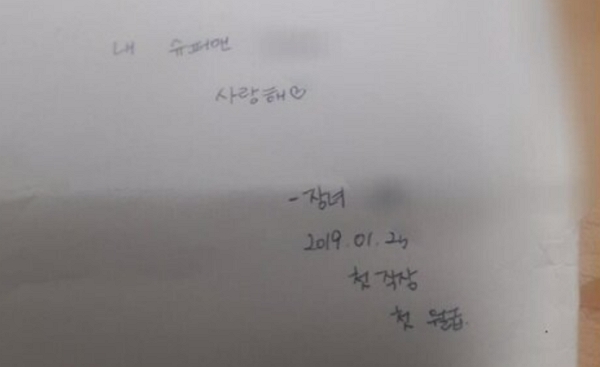 내 슈퍼맨
사랑해♡
-장녀
2019.01.25
첫 직장
첫 월급.